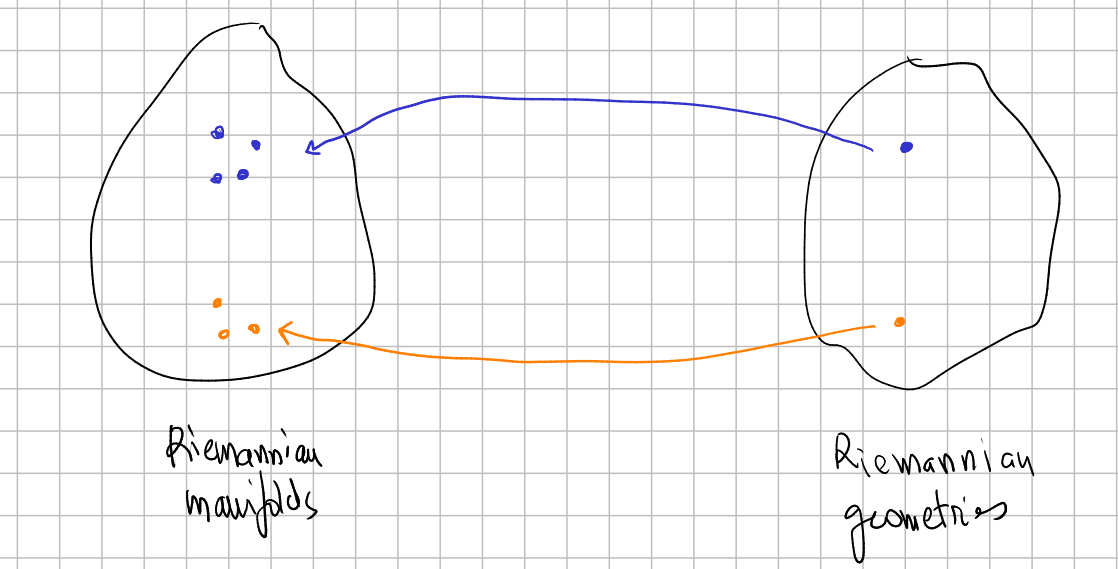 Riemannian
manifolds
Riemannian
geometries